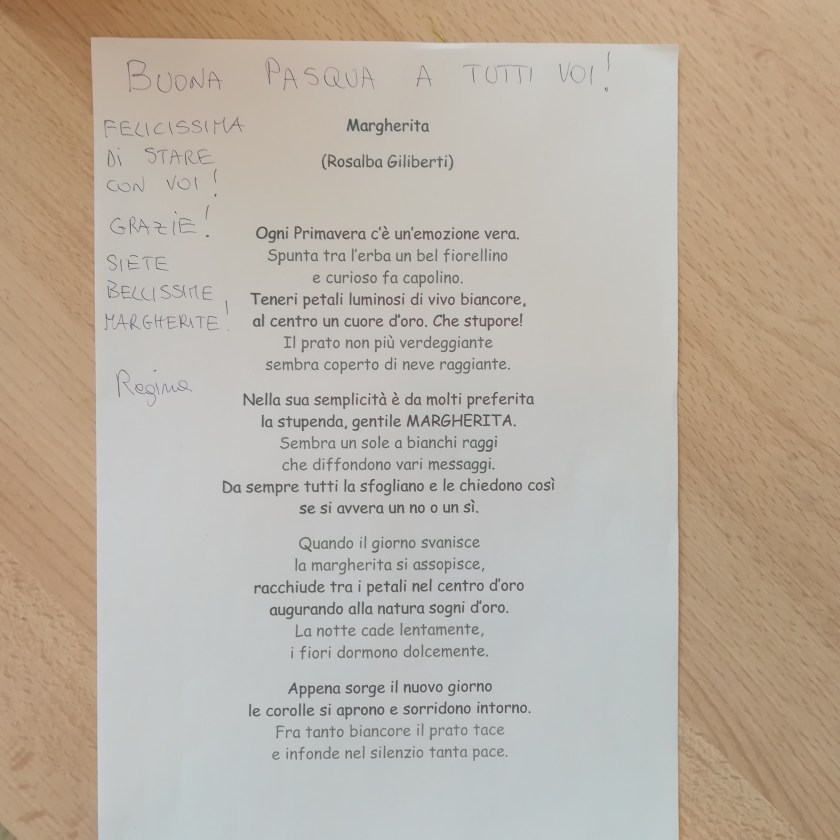 BUONA PASQUA A TUTTI VOI!
FELICISSIMA
Di STARE
CON VOI!
GRAZIE!
SIETE
BELLISSIME
MARGHERITE!
Regina
Margherita
(Rosalba Giliberti)
Ogni Primavera c'è un'emozione vera.
Spunta tra l'erba un bel fiorellino
e curioso fa capolino.
Teneri petali luminosi di vivo biancore,
al centro un cuore d'oro. Che stupore!
Il prato non più verdeggiante
sembra coperto di neve raggiante.
Nella sua semplicità è da molti preferita
la stupenda, gentile MARGHERITA.
Sembra un sole a bianchi raggi
che diffondono vari messaggi.
Da sempre tutti la sfogliano e le chiedono così
se si avvera un no o un sì.
Quando il giorno svanisce
la margherita si assopisce,
racchiude tra i petali nel centro d'oro
augurando alla natura sogni d'oro.
La notte cade lentamente,
i fiori dormono dolcemente.
Appena sorge il nuovo giorno
le corolle si aprono e sorridono intorno.
Fra tanto biancore il prato tace
e infonde nel silenzio tanta pace.